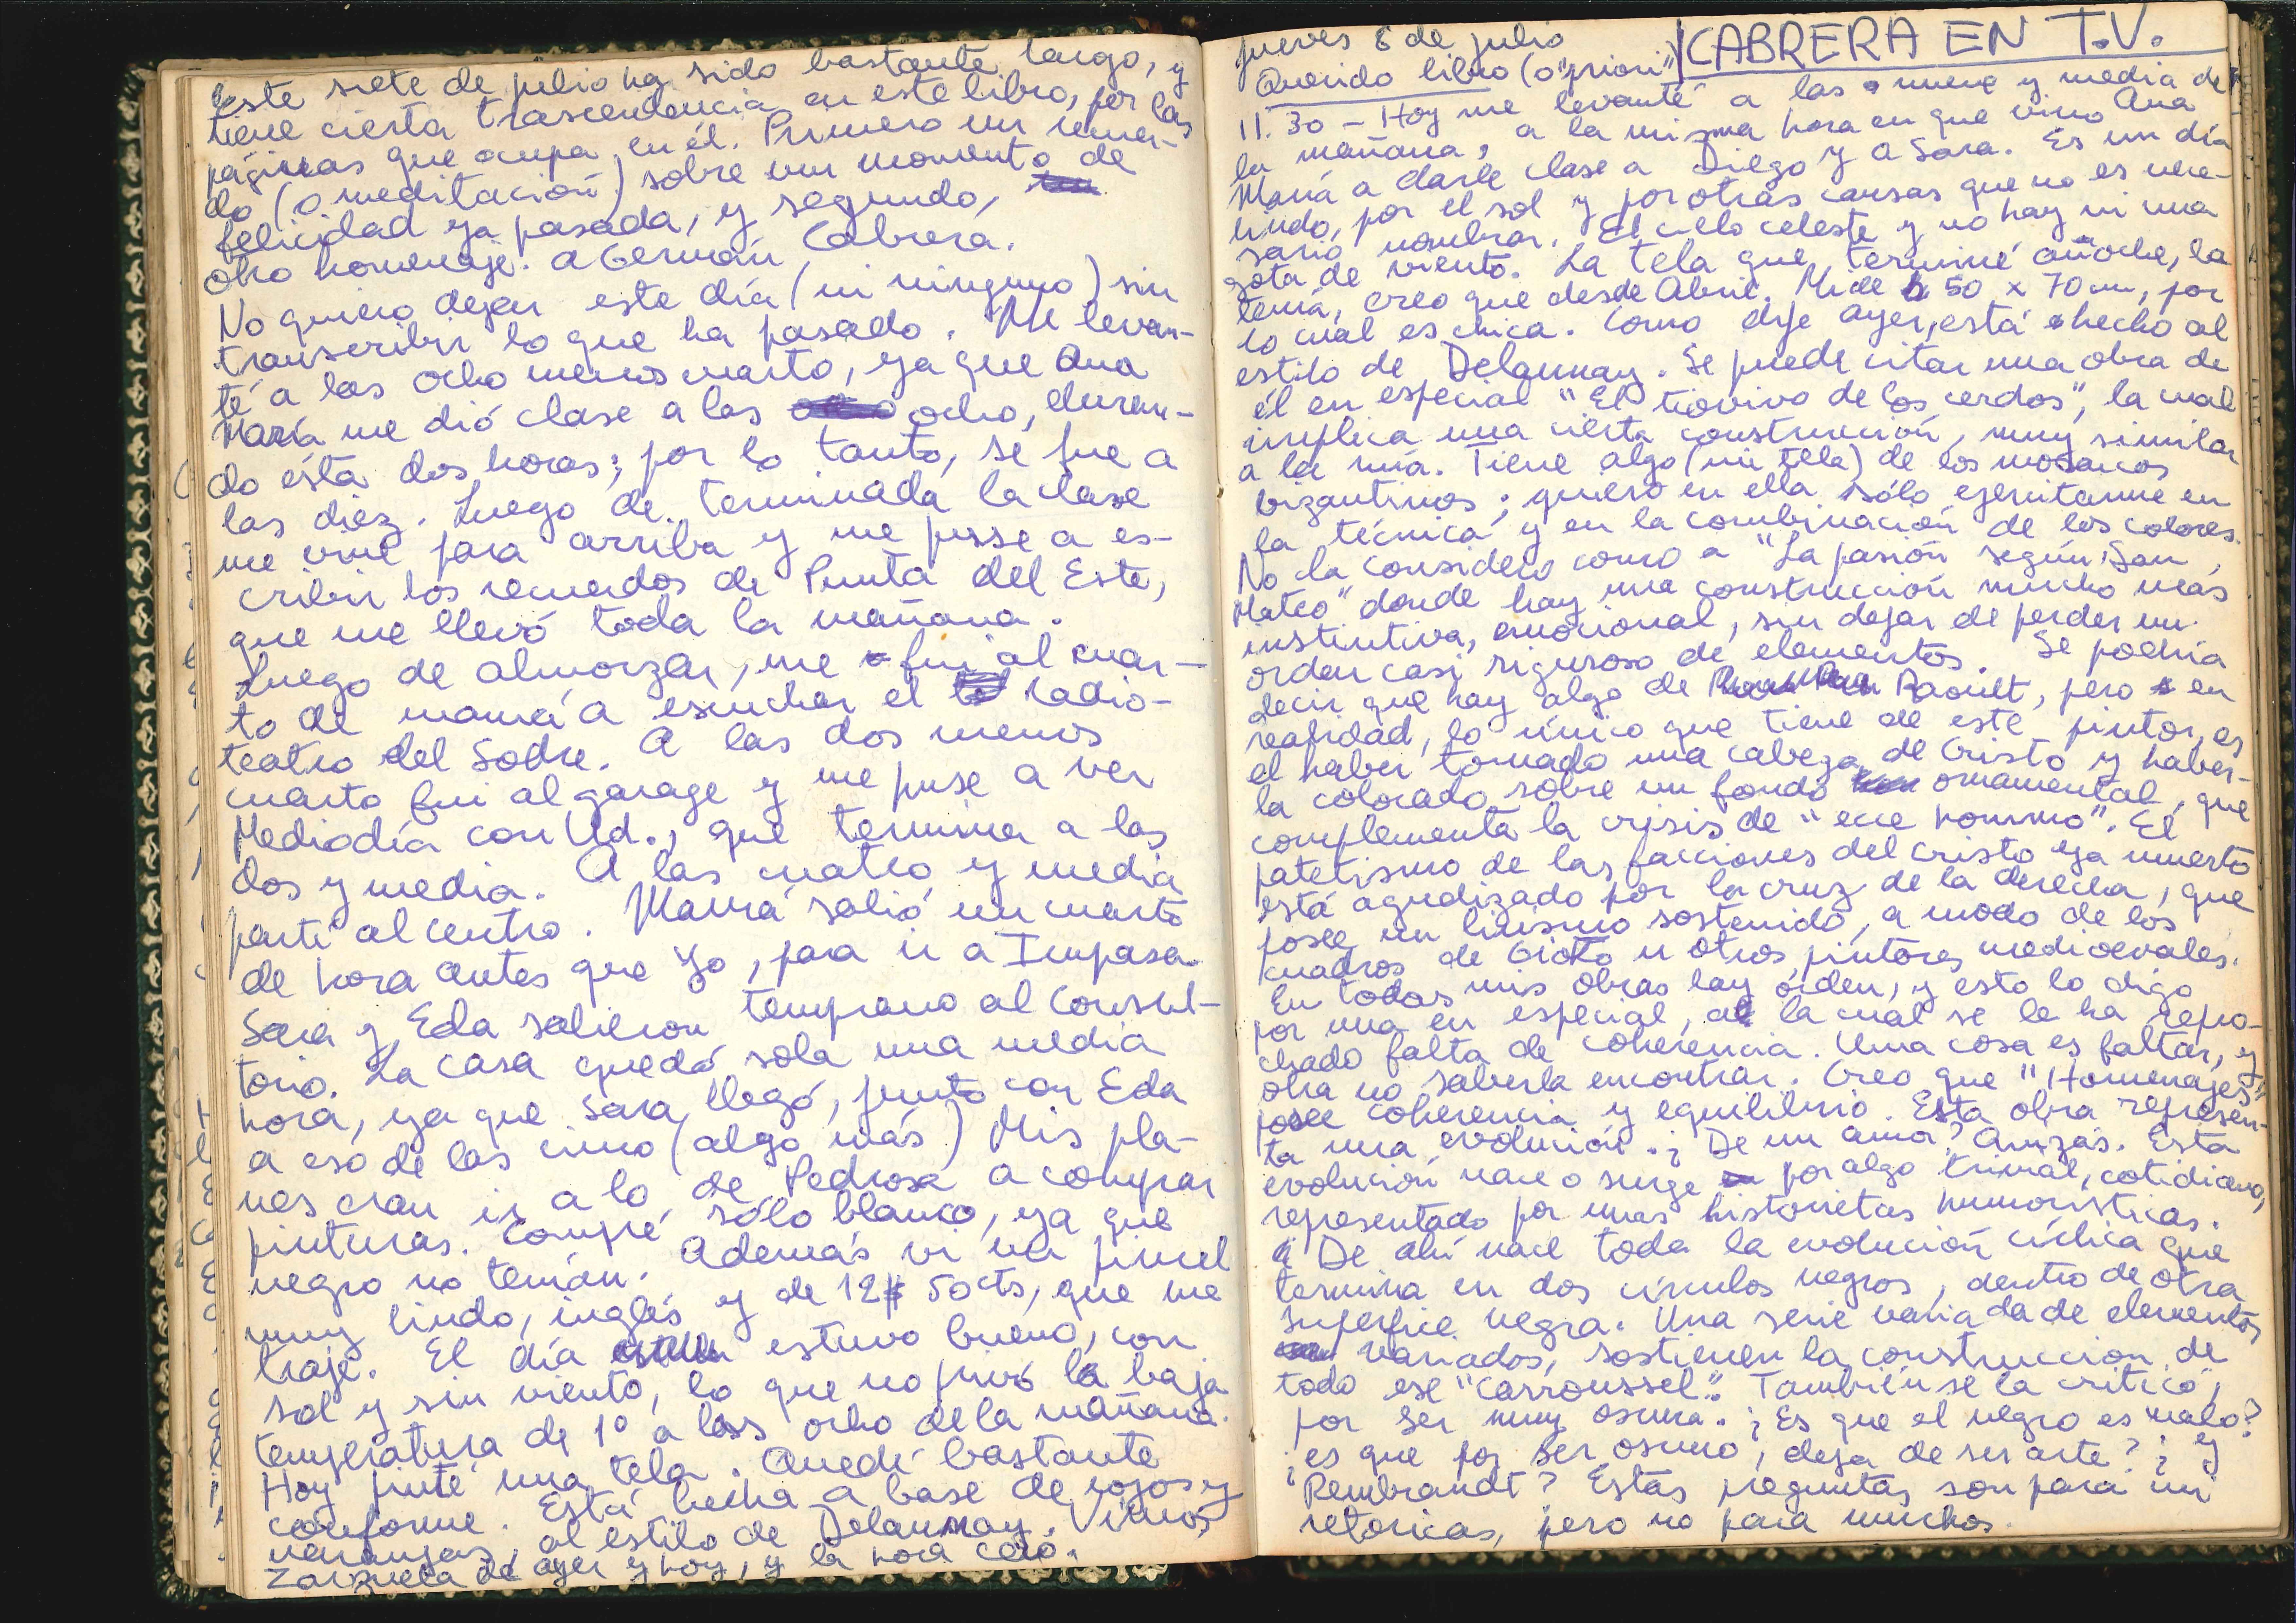 Este siete de julio ha sido bastante largo, y
tiene cierta trascendencia en este libro, por las
páginas que ocupa en él. Primero un recuer-
do (o meditación) sobre un momento de
felicidad ya pasada, y segundo,
otro homenaje: a Germán Cabrera.
No quiero dejar este día (ni ninguno) sin
transcribir lo que ha pasado. Me levan-
té a las ocho menos cuarto, ya que Ana
María me dió clase a las ocho, duran-
do esta dos horas; por lo tanto, se fue a
las diez. Luego de terminada la clase
me vine para arriba y me pusse a es-
cribir los recuerdos de Punta del Este,
que me llevó toda la mañana.
Luego de almorzar, me fui al cuar-
to de mamá a escuchar el radio-
teatro del Sodre. A las dos menos
cuarto fui al garage y me puse a ver
Mediodía con Ud., que termina a las
dos y media. A las cuatro y media
partí al centro. Mamá salió un cuarto
de hora antes que yo, para ir a Impasa.
Sara y Eda salieron temprano al consul-
torio. La casa quedó sola una media
hora, ya que Sara llegó, junto con Eda
a eso de las cinco (algo más) Mis pla-
nes eran ir a lo de Pedrosa a comprar
pinturas. Compré sólo blanco, ya que
negro no tenían. Además vi un pincel
muy lindo, inglés y de 12$ 50cts, que me
traje. El día estuvo bueno, con
sol y sin viento, lo que no privó la baja
temperatura de 1º a las ocho de la mañana.
Hoy pinté una tela. Quedé bastante
conforme. Está hecha a base de rojos y
naranjas, al estilo de Delaunnay. Vimos
Zarzuela de ayer y hoy, y la hora cero.
jueves 8 de julio
CABRERA EN T.V.
Querido libro (o "priori")
11.30 - Hoy me levanté a las nueve y media de
la mañana, a la misma hora en que vino Ana
María a darle clase a Diego y a Sara. Es un día
lindo, por el sol y por otras causas que no es nece-
sario nombrar. El cielo celeste y no hay ni una
gota de viento. La tela que terminé anoche, la
tenía, creo que desde Abril. Mide 50 x 70 cm, por
lo cual es chica. Como dije ayer, está hecho al
estilo de Delaunnay. Se puede citar una obra de
él en especial "El tiovivo de los cerdos", la cual
implica una cierta construcción, muy similar
a la mía. Tiene algo (mi tela) de los mosaicos
bizantinos; quiero en ella sólo ejercitarme en
la técnica y en la combinación de los colores.
No la considero como a "La pasión según San
Mateo" donde hay una construcción mucho más
instintiva, emocional, sin dejar de perder un
orden casi riguroso de elementos. Se podría
decir que hay algo de Raoult, pero en
realidad, lo único que tiene de este pintor, es
el haber tomado una cabeza de Cristo y haber-
la colocado sobre un fondo ornamental, que
complementa la crisis de "ecce hommo". El
patetismo de las facciones del cristo ya muerto
está agudizado por la cruz de la derecha, que
posee un lirismo sostenido, a modo de los
cuadros de Giotto u otros pintores medioevales.
En todas mis obras hay órden, y esto lo digo
por una en especial, a la cual se le ha repro-
chado falta de coherencia. Una cosa es faltar, y
otra no saberla encontrar. Creo que "Homenajes"
posee coherencia y equilibrio. Esta obra represen-
ta una evolución. ¿De un amor? Quizás. Esta
evolución nace o surge por algo trivial, cotidiano,
representado por unas historietas humorísticas.
De ahí nace toda la evolución cíclica que
termina en dos círculos negros, dentro de otra
superficie negra. Una serie variada de elementos
variados, sostienen la construcción de
todo ese "carroussel". También se la criticó,
por ser muy oscura. ¿Es que el negro es malo?
¿es que por ser oscuro, deja de ser arte? ¿Y
Rembrandt? Estas preguntas son para mí
retóricas, pero no para muchos.